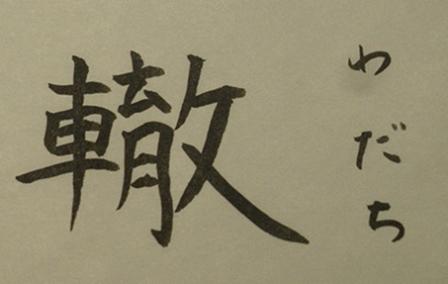 轍
わだち